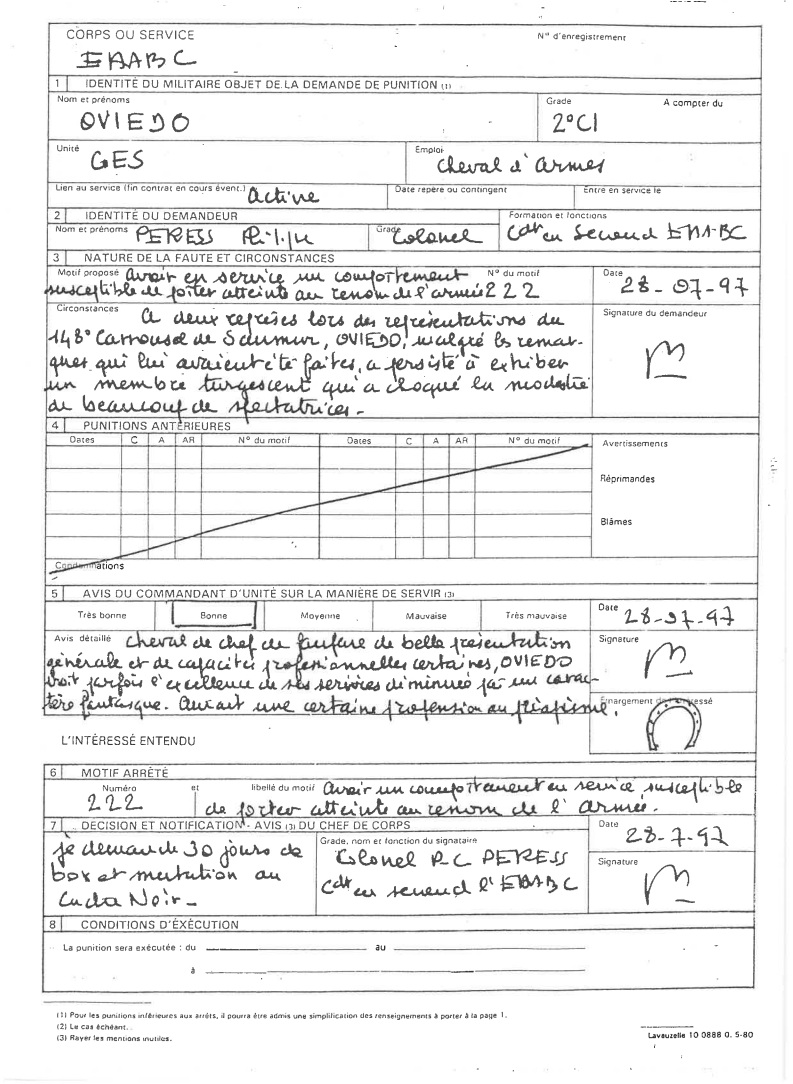 CORPS OU SERVICE
N° d'enregistrement
EAABC
1 IDENTITÉ DU MILITAIRE OBJET DE LA DEMANDE DE PUNITION (1)
Nom et prénoms
Grade
A compter du
OVIEDO
2°Cl
Unité
GES
Emploi
Cheval d'armes
Lien au service (fin contrat en cours évent.) Active
Date repère ou contingent
Entré en service le
2 IDENTITÉ DU DEMANDEUR
Formation et fonctions
Nom et prénoms PERESS
Grade Colonel
Cdt en Second EAABC
3 NATURE DE LA FAUTE ET CIRCONSTANCES
Motif proposé Avoir en service un comportement
N° du motif
susceptible de porter atteinte au renom de l'armée 222
Date
28-07-97
Circonstances
A deux reprises lors des représentations du
148° Carrousel de Saumur, OVIEDO, malgré les remar-
ques qui lui avaient été faites, a persisté à exhiber
un membre turgescent qui a choqué la modestie
de beaucoup de spectatrices.-
Signature du demandeur
4 PUNITIONS ANTÉRIEURES
Dates C A AR N° du motif Dates C A AR N° du motif
Avertissements
Réprimandes
Blâmes
Condamnations
5 AVIS DU COMMANDANT D'UNITÉ SUR LA MANIÈRE DE SERVIR (3)
Très bonne Bonne Moyenne Mauvaise Très mauvaise
Date 28-07-97
Avis détaillé Cheval de chef de fanfare de belle présentation
générale et de capacités professionnelles certaines, OVIEDO
voit parfois l'excellence de ses services diminuée par un carac-
tère fantasque. Aurait une certaine propension au priapisme.
Signature
Émargement de l'intéressé
L'INTÉRESSÉ ENTENDU
6 MOTIF ARRÊTÉ
Numéro
et
libellé du motif Avoir un comportement en service, susceptible
222
de porter atteinte au renom de l'Armée.
7 DÉCISION ET NOTIFICATION - AVIS (3) DU CHEF DE CORPS
Je demande 30 jours de
box et mutation au
Cadre Noir.-
Grade, nom et fonction du signataire
Colonel P.C PERESS
Cdt en second l'EAABC
Date
28-7-97
Signature
8 CONDITIONS D'ÉXÉCUTION
La punition sera exécutée : du
au
à
(1) Pour les punitions inférieures aux arrêts, il pourra être admis une simplification des renseignements à porter à la page 1.
(2) Le cas échéant.
(3) Rayer les mentions inutiles.
Lavauzelle 10 0888 0. 5-80